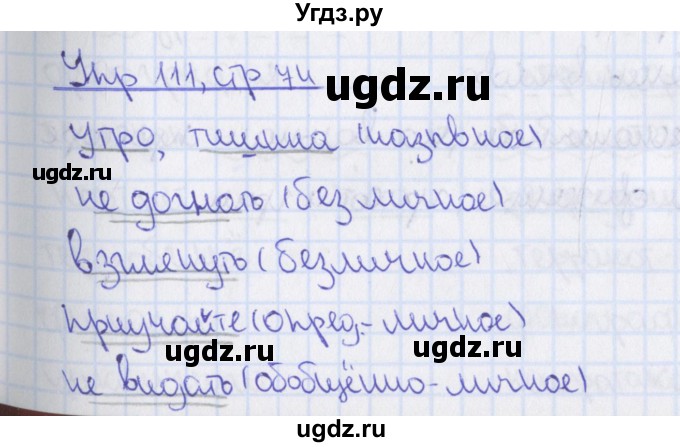 Угдз.ру
Упр 111, стр 74
ugdz.ru
утро, тишина (назывное)
ugdz.ru
не догнать (безличное)
взгленуть (безличное)
приучайте (опред.-личное)
ugdz.ru ugdz.ru
не видать (обобщённо-личное)
ugdz.ru